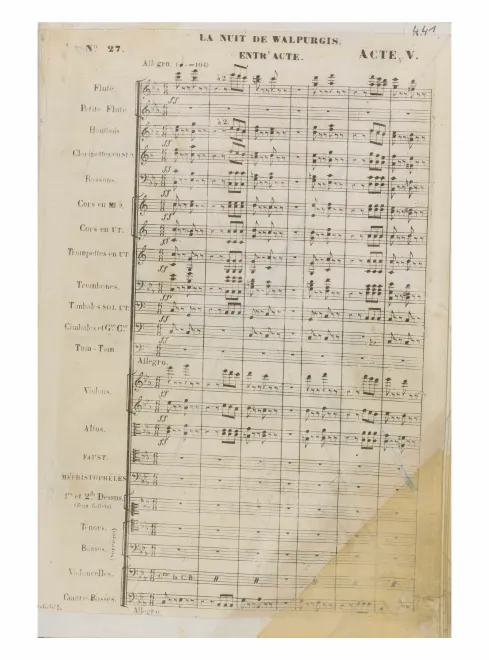 441
LA NUIT DE WALPURGIS.
Nº 27.
ENTR'ACTE.
ACTE V.
Allegro.
Flute.
Petite Flute
a2.
ff
Hautbois
a2.
ff
Clarinettes en
ff
Bassons.
ff
Cors en MI b.
ff
Cors en UT.
ff
Trompettes en UT
ff
Trombones.
ff
Timbales SOL UT.
ff
Cimbales et Gse Cse
Tam-Tam
Allegro.
Violons.
ff
ff
Altos.
ff
FAUST.
MÉPHISTOPHÉLÈS
1ers et 2ds Dessus.
Ténors.
Basses.
Violoncelles.
C.B.
Contre Basses.
Allegro.